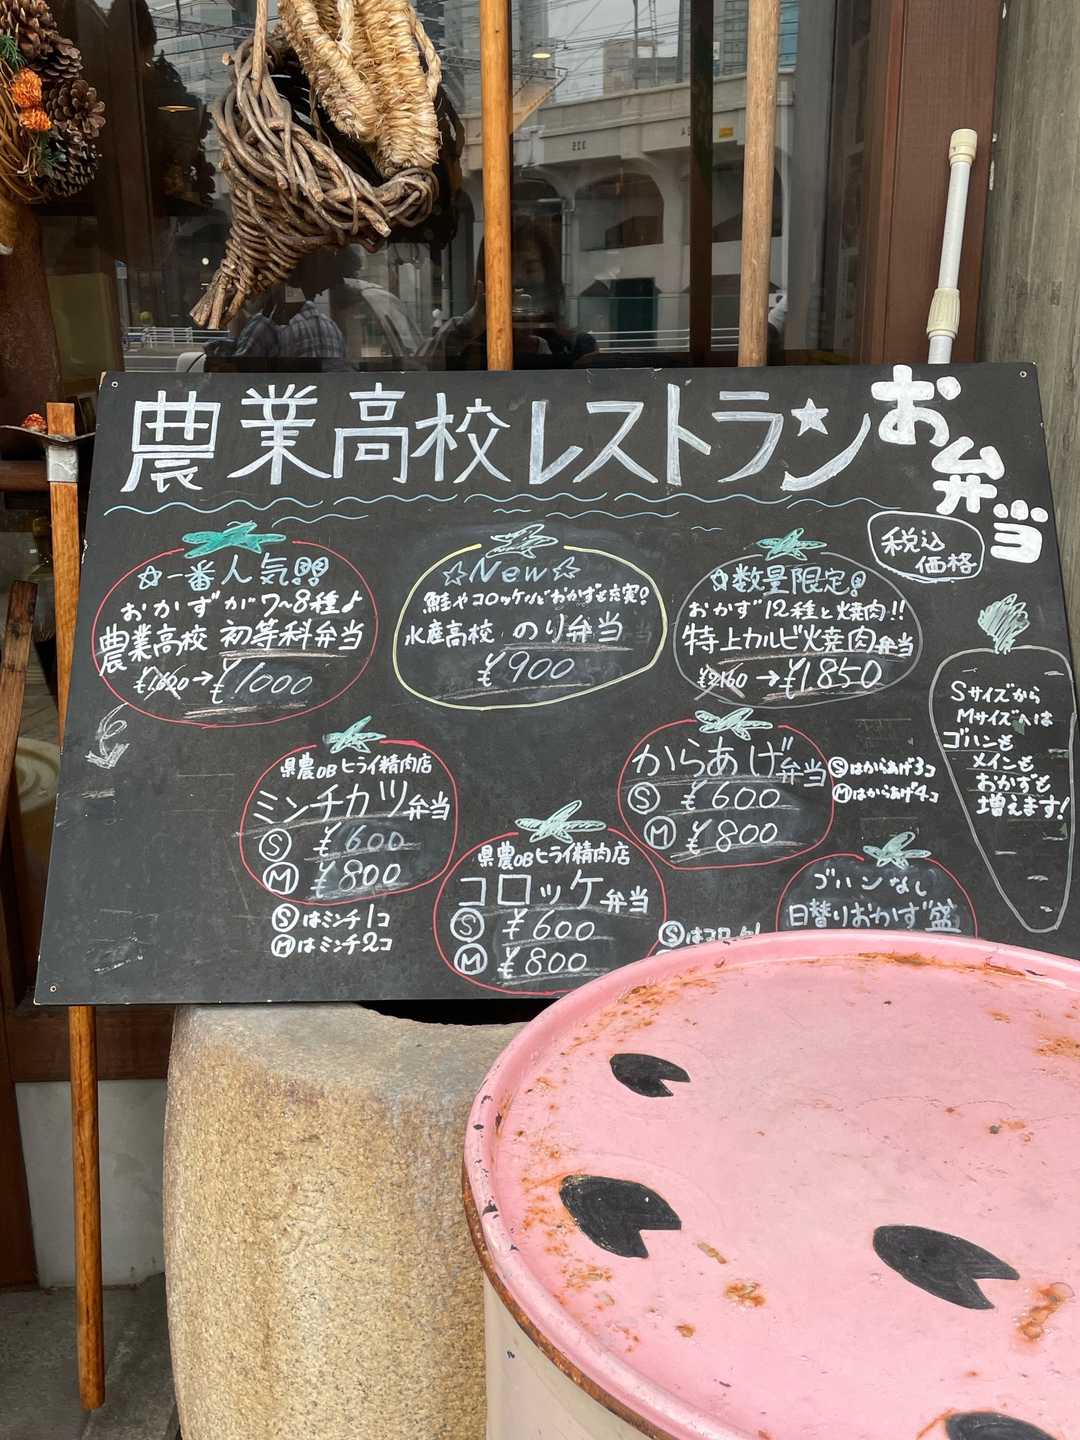 農業高校レストラン☆
お弁当
税込
価格
☆一番人気!!
おかずが7〜8種♪
農業高校 初等科弁当
→¥1000
☆New☆
鮭やコロッケなどおかずも充実!
水産高校 のり弁当
¥900
☆数量限定!
おかず12種と焼肉!!
特上カルビ焼肉弁当
¥2160→¥1850
Sサイズから
Mサイズへは
ゴハンも
メインも
おかずも
増えます!
県農OBヒライ精肉店
ミンチカツ弁当
Ⓢ ¥600
Ⓜ ¥800
Ⓢはミンチ1コ
Ⓜはミンチ2コ
県農OBヒライ精肉店
コロッケ弁当
Ⓢ ¥600
Ⓜ ¥800
からあげ弁当
Ⓢ ¥600
Ⓜ ¥800
Ⓢはからあげ3コ
Ⓜはからあげ4コ
Ⓢはコロッケ1
ゴハンなし
日替りおかず盛